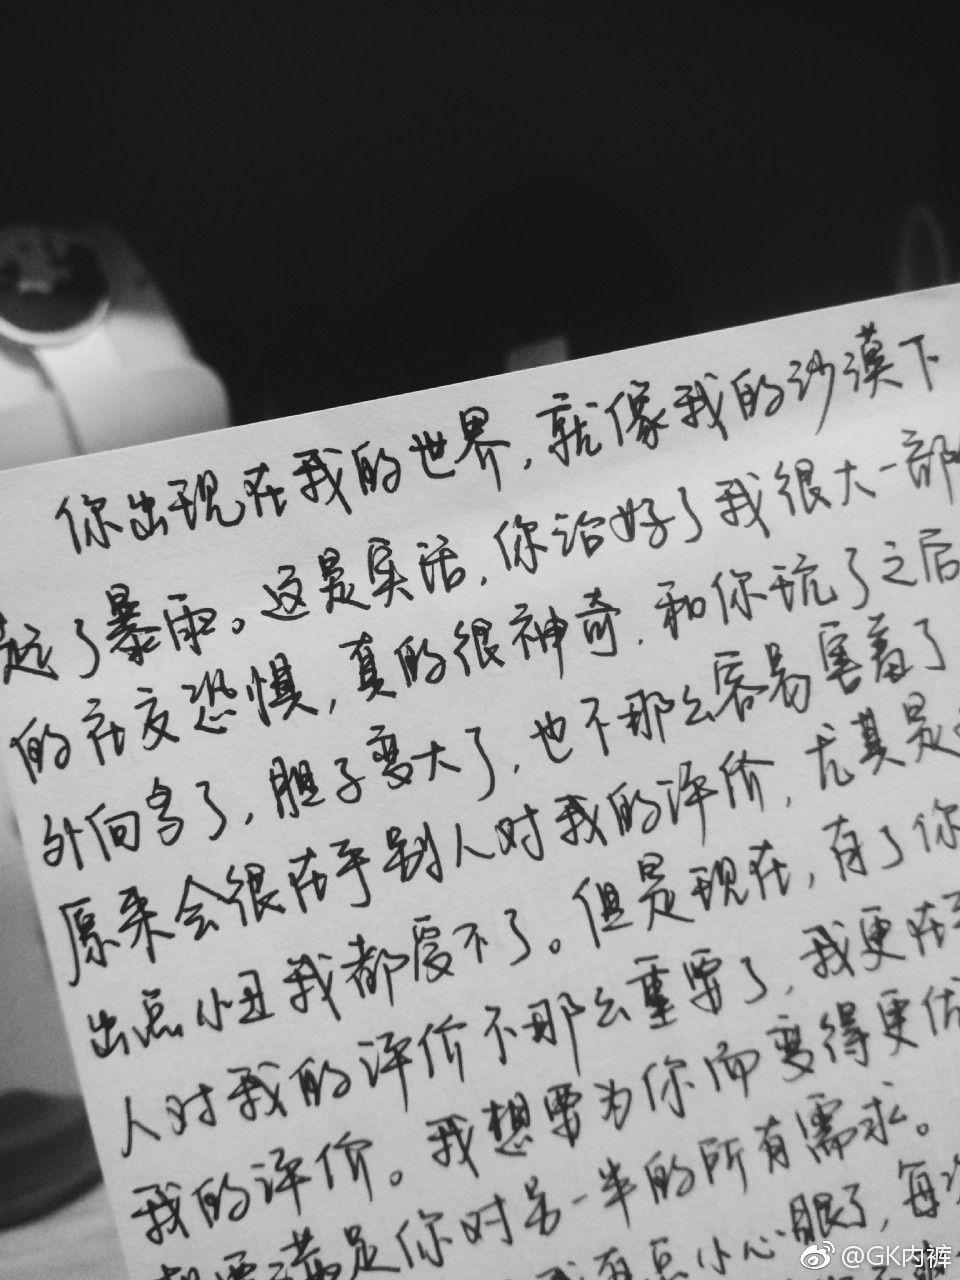 你出现在我的世界，就像我的沙漠下
起了暴雨。这是实话，你治好了我很大一部
的社交恐惧，真的很神奇，和你玩了之后
外向多了，胆子变大了，也不那么容易害羞了
原来会很在乎别人对我的评价，尤其是
出点小丑我都受不了。但是现在，有了你
人对我的评价不那么重要了，我更在乎
我的评价。我想要为你而变得更优
想要满足你对另一半的所有需求。
点小心眼了，每次
@GK内裤